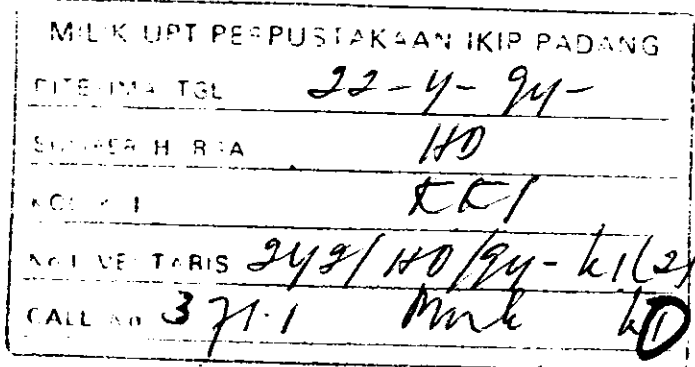 MILIK UPT PERPUSTAKAAN IKIP PADANG
DITERIMA TGL 22-4-94-
SUMBER HARGA HD
KOLEKSI KKI
No. INVENTARIS 242/HD/94-k1(2)
CALL No 371.1